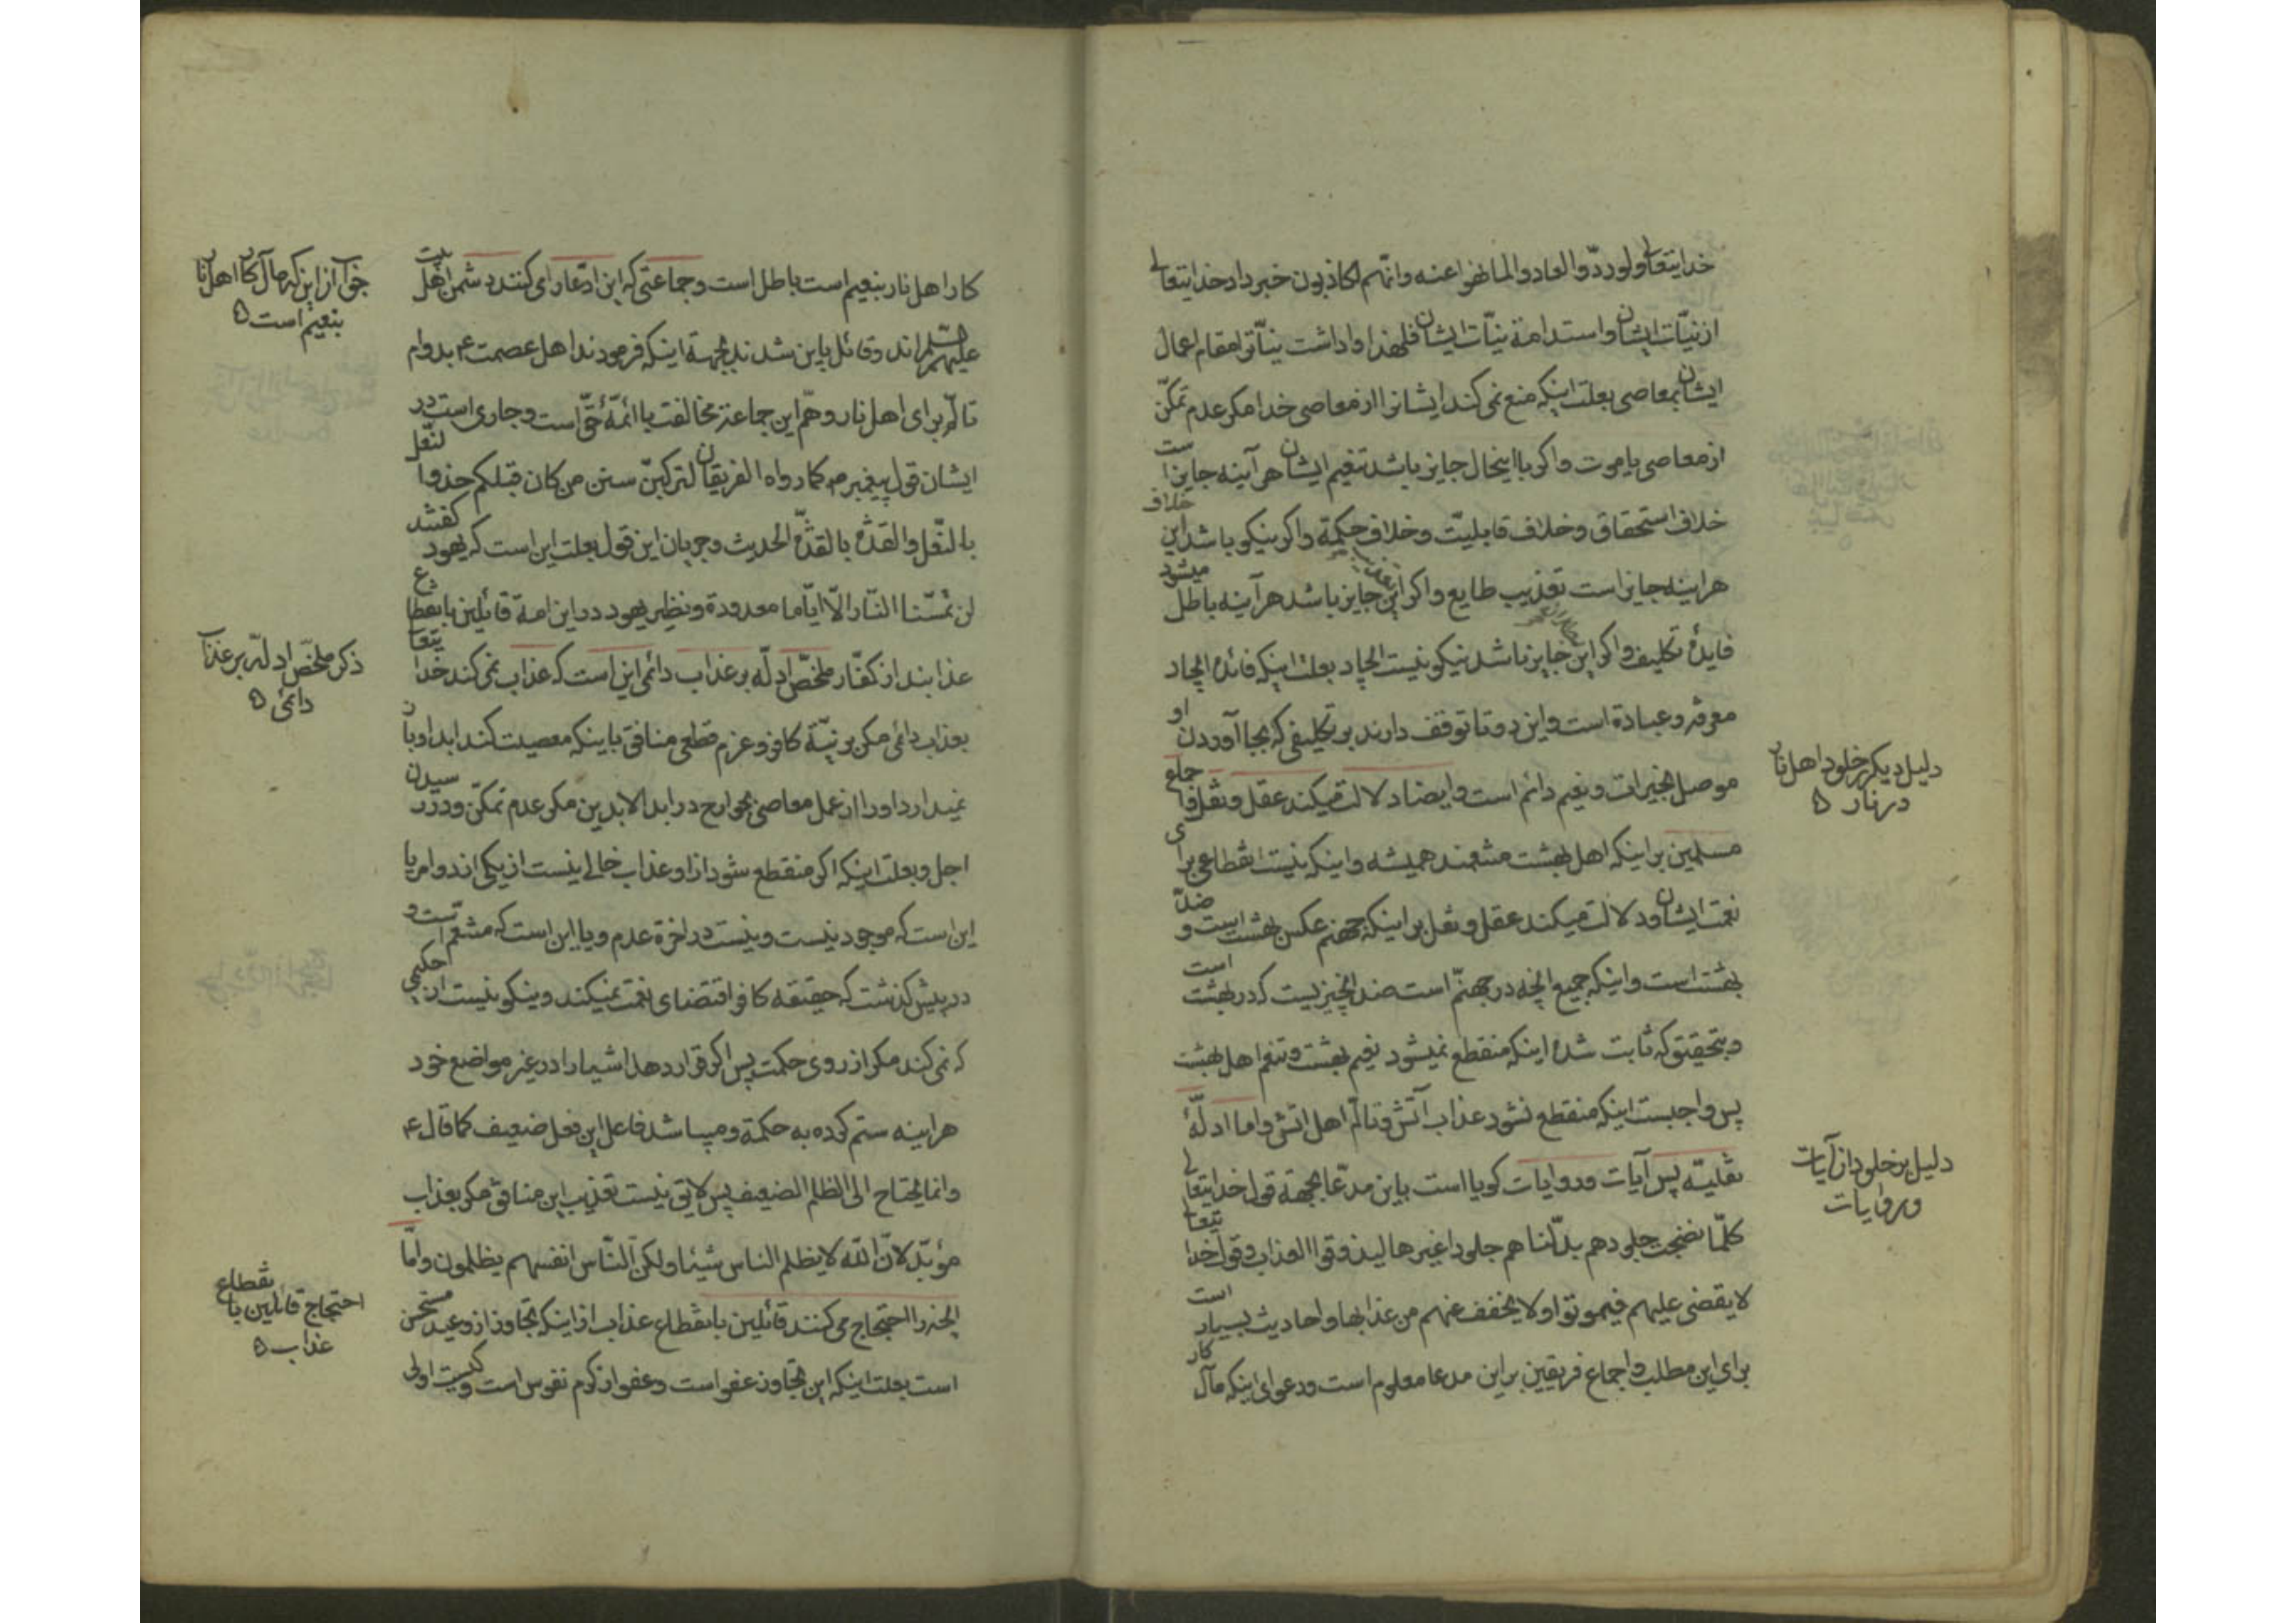 خدایتعالی ولو ردّوا لعادوا لما نهوا عنه وانّهم لکاذبون خبر داد خدایتعالی
از نیّات ایشان و استدامة نیّات ایشان فلهذا واداشت نیّاتوا مقام اعمال
ایشان بمعاصی بعلت اینکه منع نمی کند ایشانرا از معاصی خدا مکر عدم تمکّن
از معاصی یا موت واکر با اینحال جایز باشد تنعیم ایشان هر آینه جایز است
خلاف استحقاق و خلاف قابلیّت و خلاف حکمة واکر نیکو باشد این خلاف
هر اینه جایز است تعذیب طایع واکر این جایز باشد هر آینه باطل میشود
فایدهٔ تکلیف واکر این جایز باشد نیکو نیست ایجاد بعلت اینکه فائده ایجاد
معرفه و عبادة است و این دو تا توقف دارند بر تکلیفی که بجا آوردن او
موصل بخیرات و نعیم دائم است و ایضا دلالت میکند عقل و نقل و اجماع
مسلمین بر اینکه اهل بهشت متنعمند همیشه و اینکه نیست انقطاعی برای
نعمت ایشان و دلالت میکند عقل و نقل بر اینکه جهنم عکس بهشت است و ضدّ
بهشت است و اینکه جمیع انچه در جهنّم است ضد انچیزیست که در بهشت است
و بتحقیق که ثابت شده اینکه منقطع نمیشود نعیم بهشت و تنعم اهل بهشت
پس واجبست اینکه منقطع نشود عذاب آتش و تالّم اهل اتش و اما ادلّهٔ
نقلیّه پس آیات و روایات کویا است باین مدّعا بجهة قول خدایتعالی
کلّما نضجت جلودهم بدّلناهم جلودا غیرها لیذوقوا العذاب و قول خدایتعا
لا یقضی علیهم فیموتوا و لا یخفف عنهم من عذابها و احادیث بسیار است
برای این مطلب و اجماع فریقین براین مدعا معلوم است و دعوای اینکه مآل کار
دلیل دیکر بر خلود اهل نار
در نار ۵
دلیل بر خلود از آیات
و روایات
کار اهل نار بنعیم است باطل است و جماعتی که این ادّعا را می کنند دشمن اهل بیت
علیهم السّلم اند و قائل باین شدند بجهة اینکه فرمودند اهل عصمت ع بدوام
تالّم برای اهل نار و همّ این جماعة مخالفت با ائمّهٔ حقّ است و جاری است در
ایشان قول پیغمبر ص کما رواه الفریقان لترکبنّ سنن من کان قبلکم حذو النّعل
بالنّعل والقذّه بالقذّه الحدیث و جریان این قول بعلت این است که یهود کفتند
لن تمسّنا النّار الّا ایّاما معدودة و نظیر یهود در این امة قائلین بانقطاع
عذابند از کفّار ملخّص ادلّه بر عذاب دائمی این است که عذاب نمی کند خدایتعا
بعذاب دائمی مکر بر نیّة کافر و عزم قطعی منافق باینکه معصیت کند ابدا و باز
نمیدارد او را از عمل معاصی بجوارح در ابد الابدین مکر عدم تمکّن و در رسیدن
اجل و بعلت اینکه اکر منقطع شود از او عذاب خالی نیست از یکی از دو امر یا
این است که موجود نیست و نیست در اخرة عدم و یا این است که متنعّم است و
در پیش کذشت که حقیقه کافر اقتضای نعمت نمیکند و نیکو نیست از حکیمی
که نمی کند مکر از روی حکمت پس اکر قرار دهد اشیاء را در غیر مواضع خود
هر اینه ستم کرده به حکمة و میباشد فاعل این فعل ضعیف کما قال ع
وانما یحتاج الی الظلم الضعیف پس لایق نیست تعذیب این منافق مکر بعذاب
مؤبّد لانّ اللّه لا یظلم الناس شیئا ولکن النّاس انفسهم یظلمون و امّا
انچه را احتجاج می کنند قائلین بانقطاع عذاب از اینکه تجاوز از وعید مستحسن
است بعلت اینکه این تجاوز عفو است و عفو از کرم نفوس است و کیست اولی
جواب از این که مآل کار اهل نار
بنعیم است ۵
ذکر ملخّص ادلّه بر عذاب
دائمی ۵
احتجاج قائلین بانقطاع
عذاب ۵